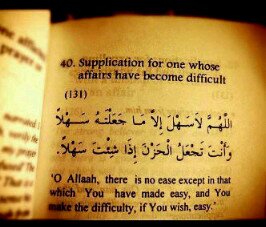 40. Supplication for one whose
affairs have become difficult
(131)
اللَّهُمَّ لَاسَهْلَ إِلاَّ مَا جَعَلْتَهُ سَهْلاً
وَأَنْتَ تَجْعَلُ الْحَزْنَ إِذَا شِئْتَ سَهْلاً.
'O Allaah, there is no ease except in that
which You have made easy, and You
make the difficulty, if You wish, easy.'